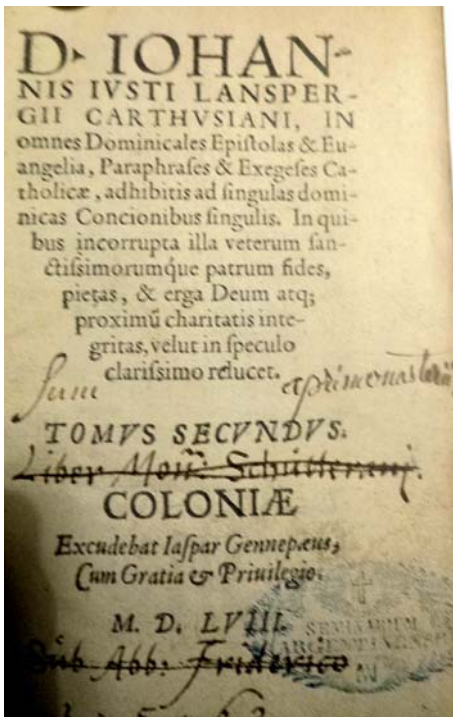 D. IOHAN-
NIS IVSTI LANSPER-
GII CARTHVSIANI, IN
omnes Dominicales Epistolas & Eu-
angelia, Paraphrases & Exegeses Ca-
tholicæ, adhibitis ad singulas domi-
nicas Concionibus singulis. In qui-
bus incorrupta illa veterum san-
ctissimorumq́ue patrum fides,
pietas, & erga Deum atq;
proximũ charitatis inte-
gritas, velut in speculo
clarissimo relucet.
Sum
TOMVS SECVNDVS.
Liber Mon: Schutterani.
COLONIÆ
Excudebat Iaspar Gennepæus,
Cum Gratia & Priuilegio.
M. D. LVIII.
SEMINARIUM
ARGENTINENSE
Sub Abb: Friderico